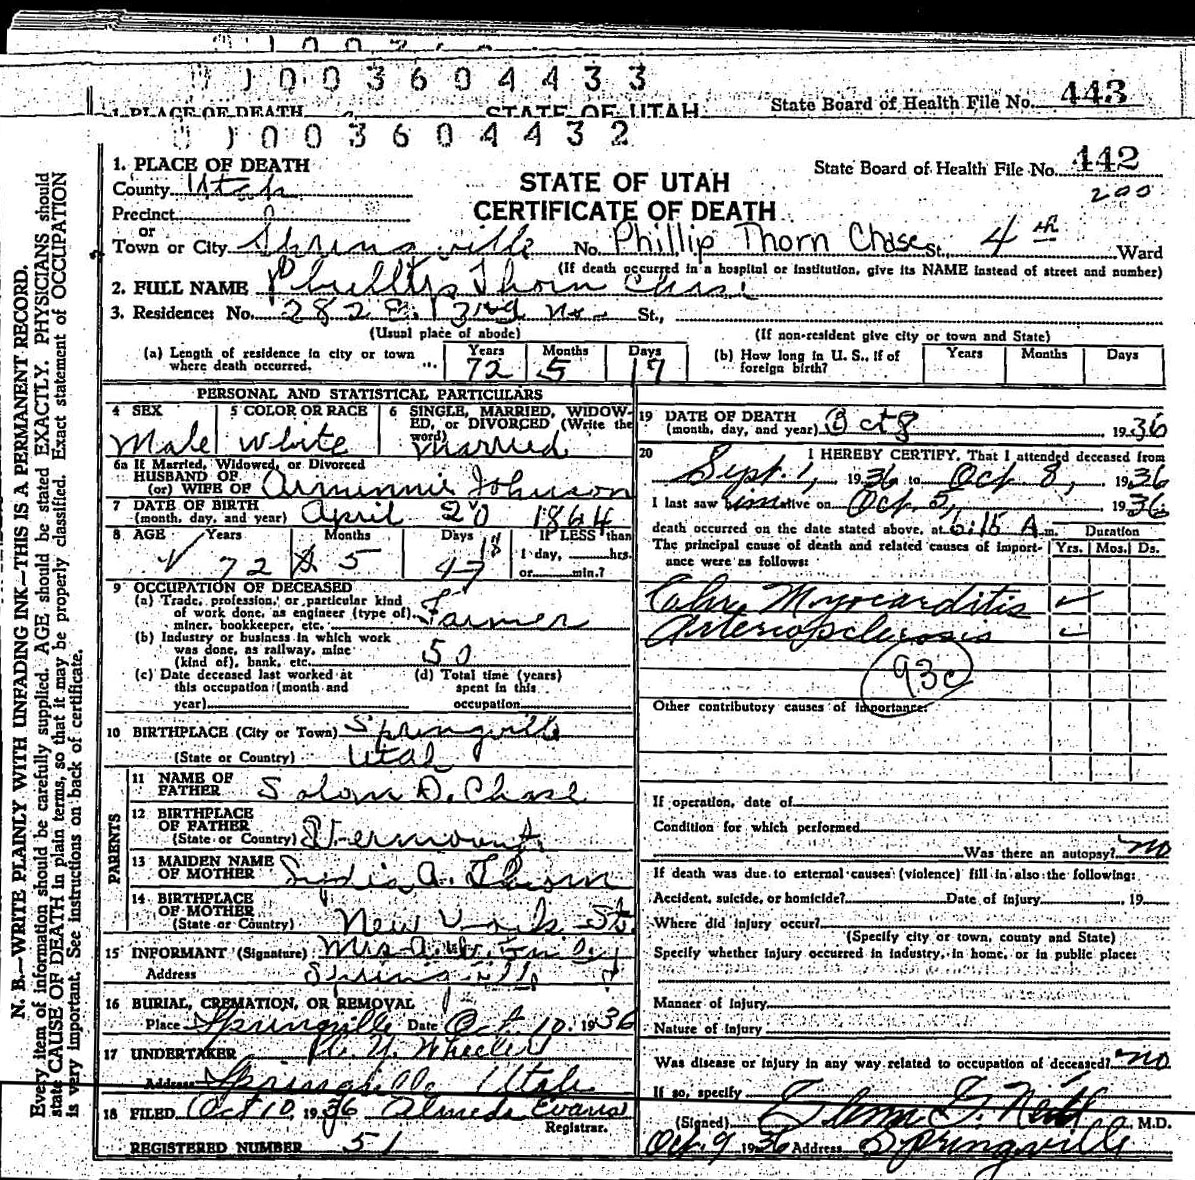 0 1 0 0 3 6 0 4 4 3 3
1. PLACE OF DEATH STATE OF UTAH State Board of Health File No. 443
0 1 0 0 3 6 0 4 4 3 2
1. PLACE OF DEATH
County Utah
Precinct
or
Town or City Springville No. Phillip Thorn Chase St., 4th Ward
State Board of Health File No. 442
200
STATE OF UTAH
CERTIFICATE OF DEATH
(If death occurred in a hospital or institution, give its NAME instead of street and number)
2. FULL NAME Thorn Chase
3. Residence: No. 282 E. 3rd No. St.,
(Usual place of abode) (If non-resident give city or town and State)
(a) Length of residence in city or town where death occurred. Years 72 Months 5 Days 17
(b) How long in U. S., if of foreign birth? Years Months Days
PERSONAL AND STATISTICAL PARTICULARS
4 SEX Male
5 COLOR OR RACE White
6 SINGLE, MARRIED, WIDOWED, OR DIVORCED (Write the word) Married
6a If Married, Widowed, or Divorced
HUSBAND OF
(or) WIFE OF Arminnie Johnson
7 DATE OF BIRTH
(month, day, and year) April 20 1864
8 AGE Years 72 Months 5 Days 18 IF LESS than
1 day, hrs.
or min.?
9 OCCUPATION OF DECEASED
(a) Trade, profession, or particular kind
of work done, as engineer (type of),
miner, bookkeeper, etc. Farmer
(b) Industry or business in which work
was done, as railway, mine
(kind of), bank, etc. 50
(c) Date deceased last worked at
this occupation (month and
year)
(d) Total time (years)
spent in this
occupation
10 BIRTHPLACE (City or Town) Springville
(State or Country) Utah
PARENTS
11 NAME OF
FATHER Solom D. Chase
12 BIRTHPLACE
OF FATHER
(State or Country) Vermont
13 MAIDEN NAME
OF MOTHER A. Thorn
14 BIRTHPLACE
OF MOTHER
(State or Country) New York St.
15 INFORMANT (Signature) Mrs. A. W.
Address Springville
16 BURIAL, CREMATION, OR REMOVAL
Place Springville Date Oct 10, 1936
17 UNDERTAKER Wheeler
Address Springville Utah
18 FILED Oct 10, 1936 Almeda Evans
Registrar.
REGISTERED NUMBER 51
19 DATE OF DEATH
(month, day, and year) Oct 8 1936
20 I HEREBY CERTIFY, That I attended deceased from
Sept. 1, 1936 to Oct 8, 1936
I last saw him alive on Oct. 5, 1936
death occurred on the date stated above, at 6:15 A m. Duration
The principal cause of death and related causes of importance were as follows: Yrs. Mos. Ds.
Chr. Myocarditis ✓
Arteriosclerosis ✓
93c
Other contributory causes of importance:
If operation, date of
Condition for which performed
Was there an autopsy? no
If death was due to external causes (violence) fill in also the following:
Accident, suicide, or homicide? Date of injury 19
Where did injury occur?
(Specify city or town, county and State)
Specify whether injury occurred in industry, in home, or in public place:
Manner of Injury
Nature of Injury
Was disease or injury in any way related to occupation of deceased? no
If so, specify
(Signed) Glenn M.D.
Oct. 9 1936 Address Springville
N. B.—WRITE PLAINLY WITH UNFADING INK—THIS IS A PERMANENT RECORD.
Every item of information should be carefully supplied. AGE should be stated EXACTLY. PHYSICIANS should
state CAUSE OF DEATH in plain terms, so that it may be properly classified. Exact statement of OCCUPATION
is very important. See instructions on back of certificate.